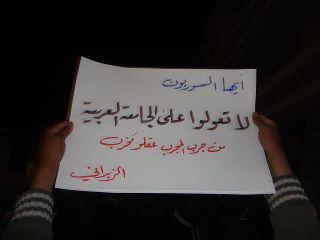 أيها السوريون
لا تعولوا على الجامعة العربية
من جرب المجرب عقلو مخرب
الزبداني